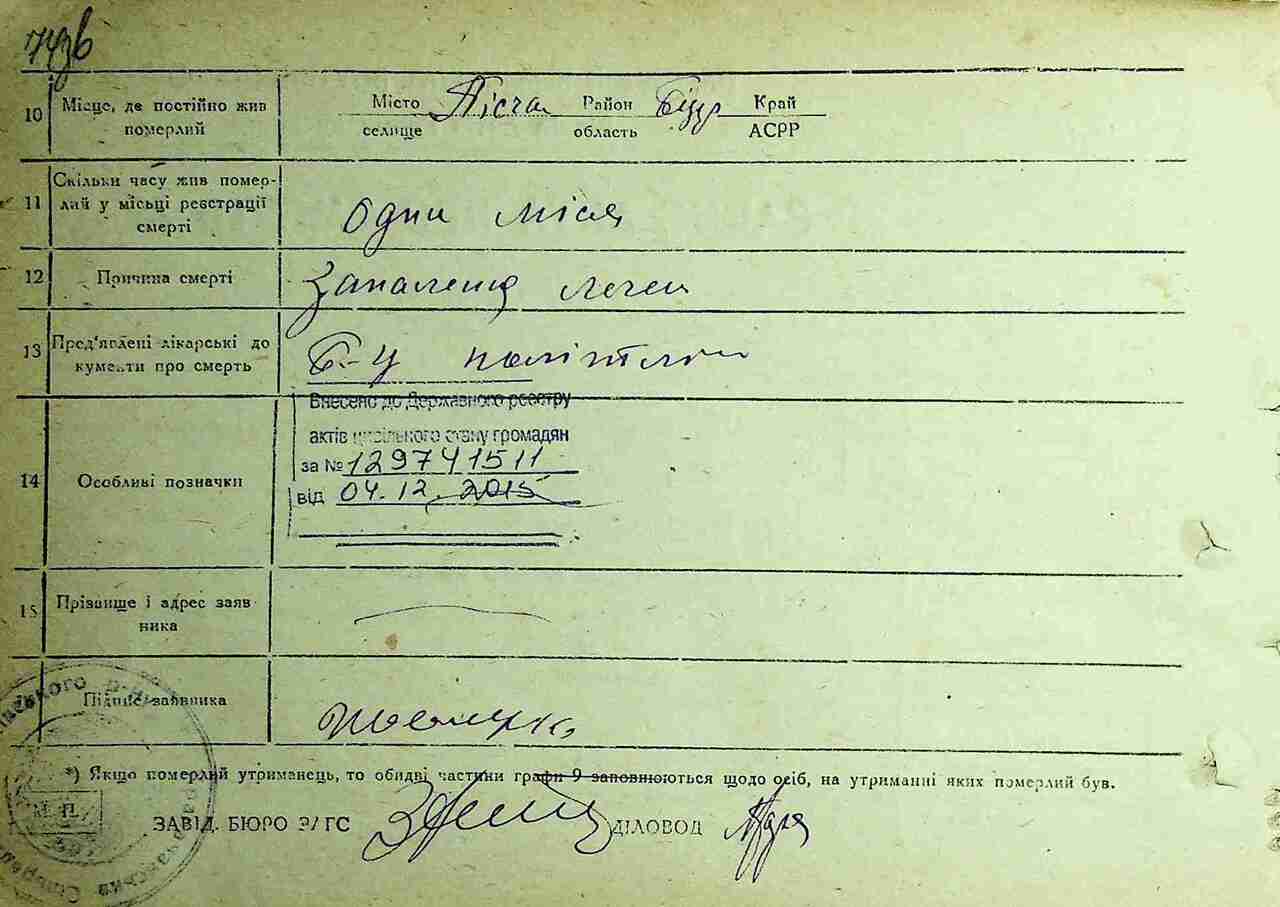 743в
10 Місце, де постійно жив Місто Пісча Район Край
померлий селище область АСРР
Скільки часу жив помер-
11 лий у місьці реєстрації Один міся
смерті
12 Причина смерті Запалення леген
13 Пред'явлені лікарські до
кументи про смерть
Внесено до Державного реєстру
актів цивільного стану громадян
за № 129741511
14 Особливі позначки
від 04.12.2015
15 Прізвище і адрес заяв
ника
Підпис заявника
*) Якщо померлий утриманець, то обидві частини графи 9 заповнюються щодо осіб, на утриманні яких померлий був.
М. П.
ЗАВІД. БЮРО ЗАГС ДІЛОВОД